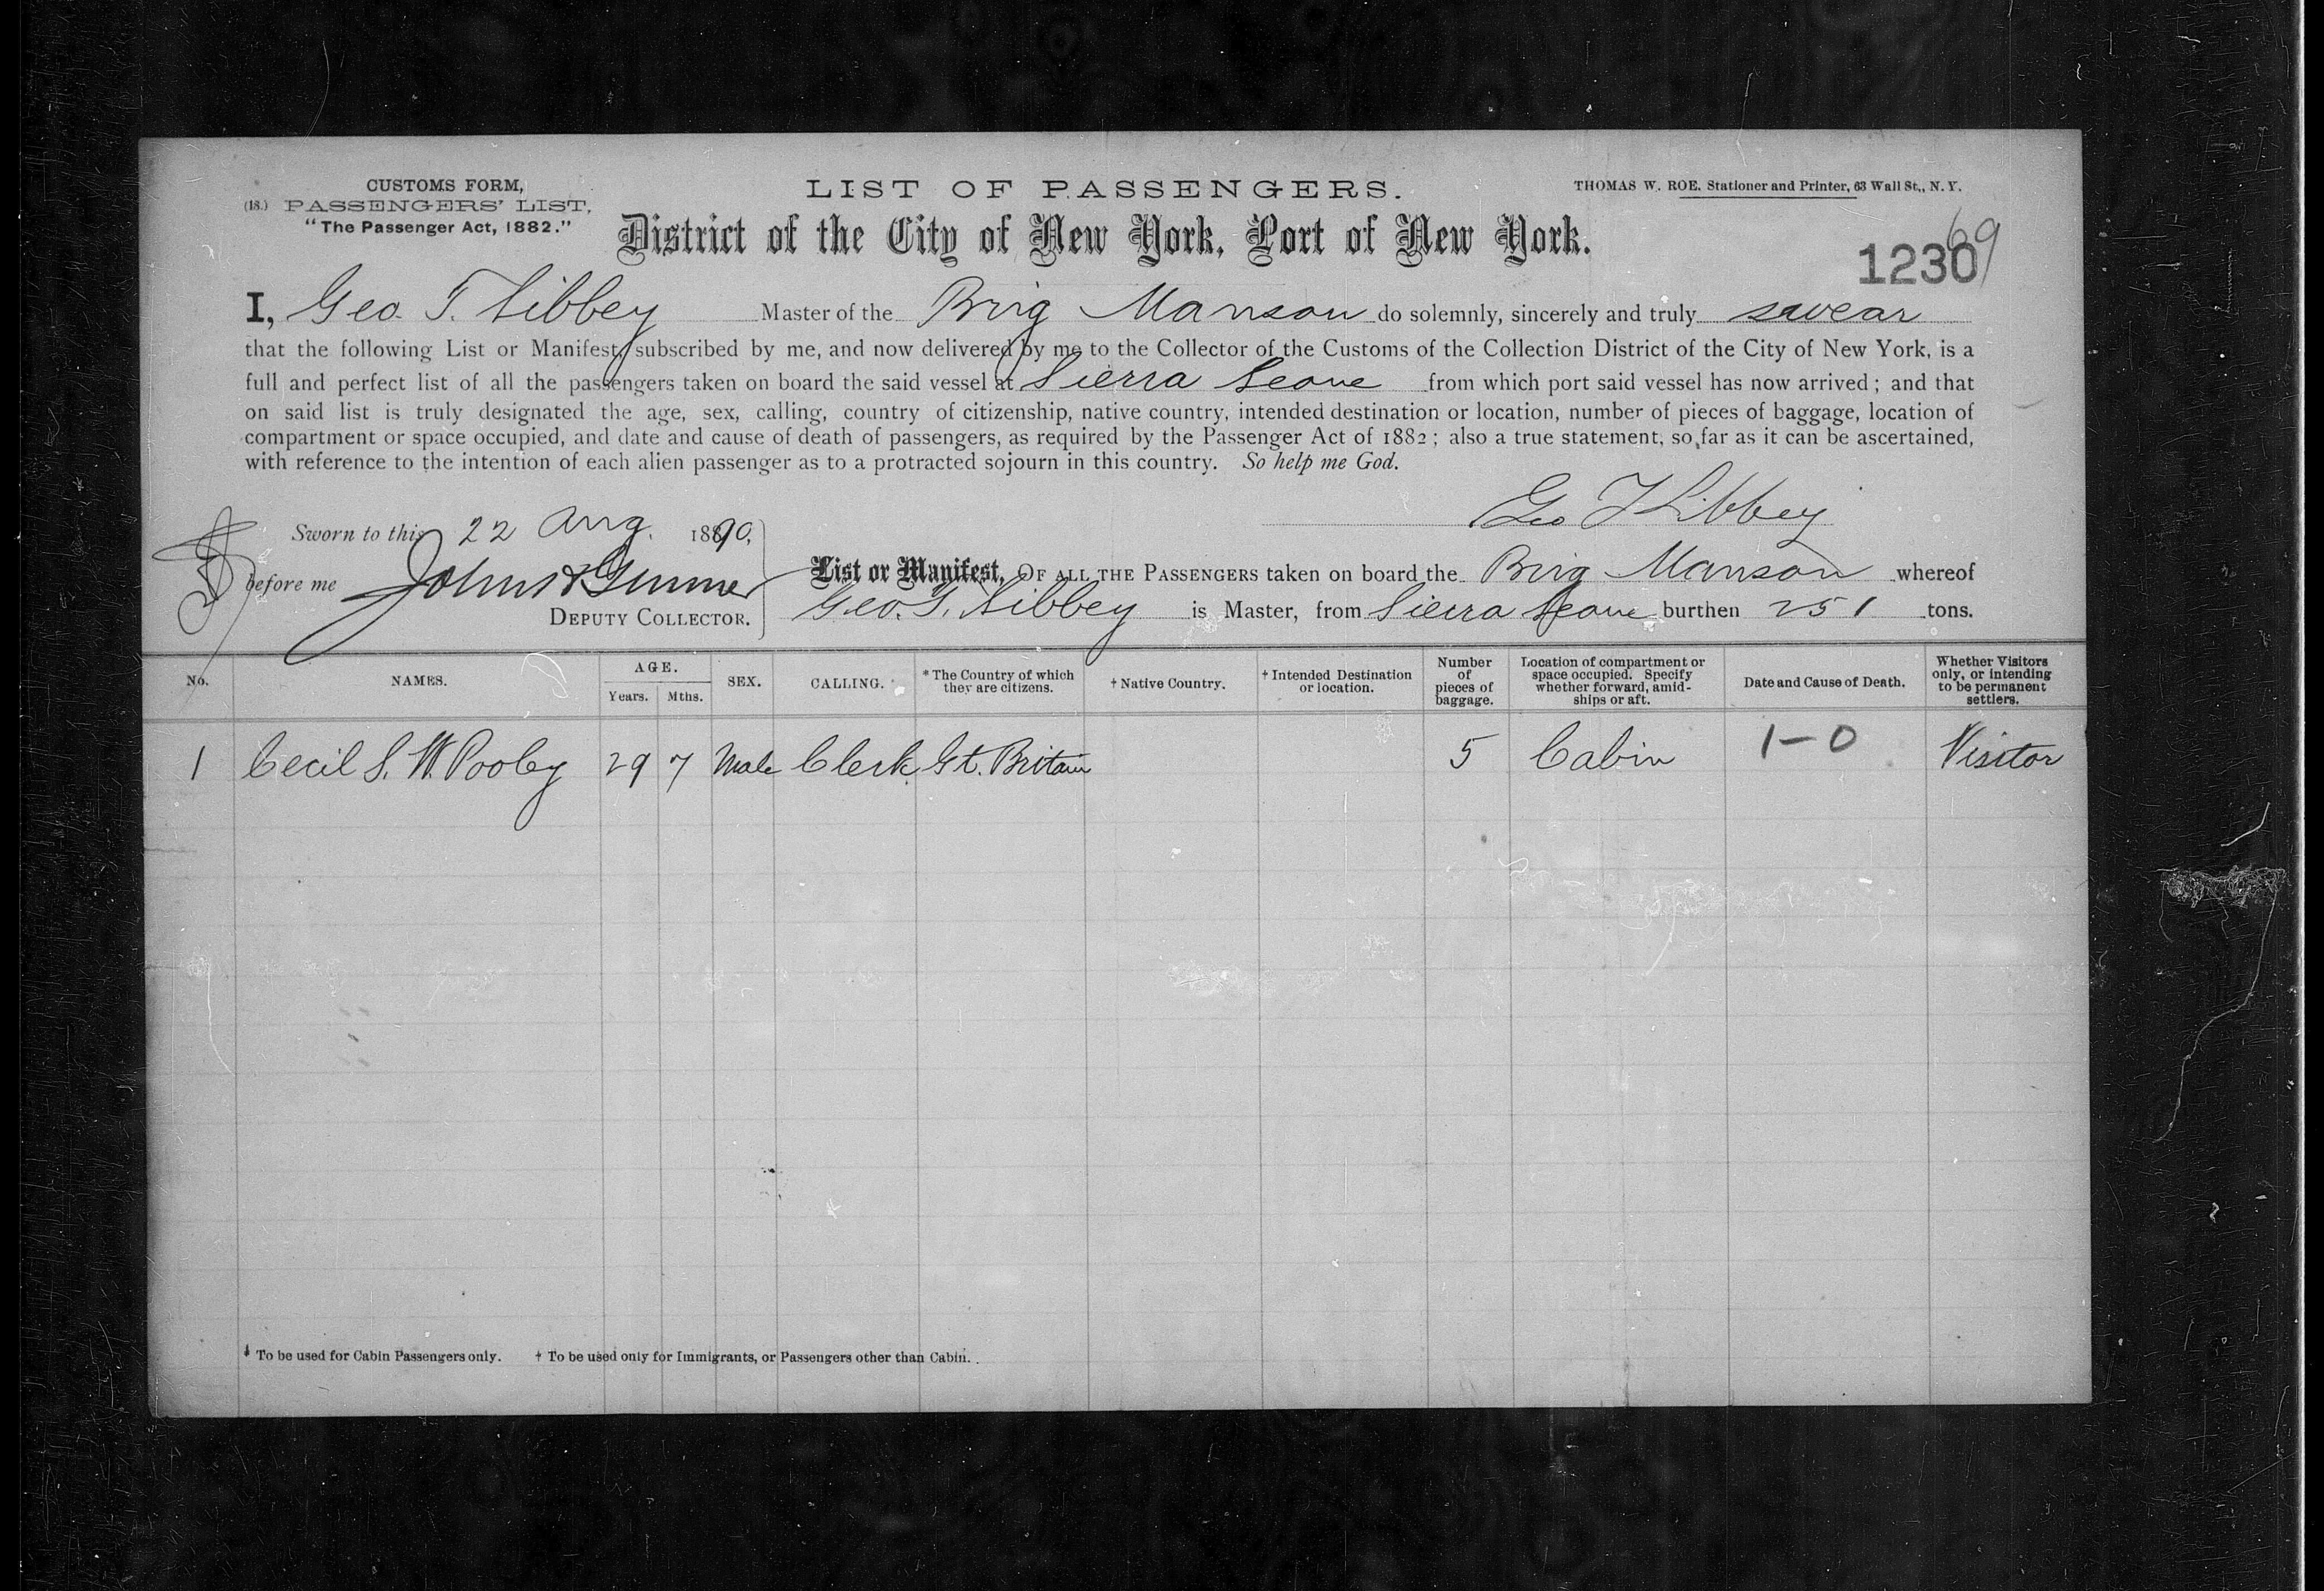 CUSTOMS FORM,
(18.) PASSENGERS' LIST,
"The Passenger Act, 1882."
LIST OF PASSENGERS.
THOMAS W. ROE. Stationer and Printer, 63 Wall St., N. Y.
District of the City of New York, Port of New York.
69
1230
I, Geo. T. Libbey Master of the Brig Manson do solemnly, sincerely and truly swear
that the following List or Manifest, subscribed by me, and now delivered by me to the Collector of the Customs of the Collection District of the City of New York, is a
full and perfect list of all the passengers taken on board the said vessel at Sierra Leone from which port said vessel has now arrived; and that
on said list is truly designated the age, sex, calling, country of citizenship, native country, intended destination or location, number of pieces of baggage, location of
compartment or space occupied, and date and cause of death of passengers, as required by the Passenger Act of 1882; also a true statement, so far as it can be ascertained,
with reference to the intention of each alien passenger as to a protracted sojourn in this country. So help me God.
Geo T Libbey
Sworn to this 22 Aug. 1890,
before me
DEPUTY COLLECTOR.
List or Manifest, OF ALL THE PASSENGERS taken on board the Brig Manson whereof
Geo. T. Libbey is Master, from Sierra Leone burthen 251 tons.
No. NAMES. AGE. Years. Mths. SEX. CALLING. * The Country of which they are citizens. † Native Country. † Intended Destination or location. Number of pieces of baggage. Location of compartment or space occupied. Specify whether forward, amidships or aft. Date and Cause of Death. Whether Visitors only, or intending to be permanent settlers.
1 Cecil S. W. Pooley 29 7 Male Clerk Gt. Britain 5 Cabin 1-0 Visitor
* To be used for Cabin Passengers only. † To be used only for Immigrants, or Passengers other than Cabin.